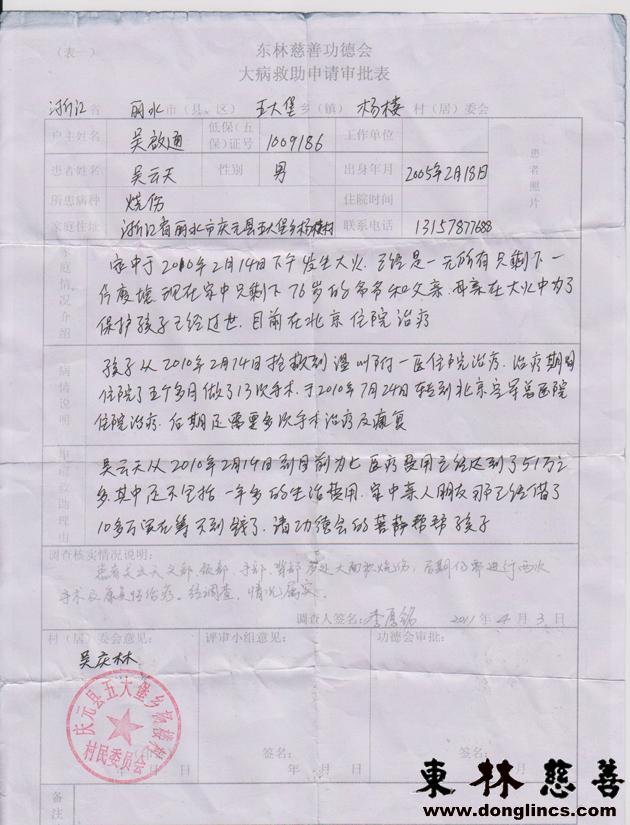 （表一）
东林慈善功德会
大病救助申请审批表
浙江省 丽水市（县、区） 五大堡乡（镇） 杨楼村（居）委会
户主姓名 吴啟通 低保（五保）证号 1009186 工作单位
患者姓名 吴云天 性别 男 出身年月 2005年2月18日
患者照片
所患病种 烧伤 住院时间
家庭住址 浙江省丽水市庆元县五大堡乡杨楼村 联系电话 13157877688
家庭情况介绍
家中于2010年2月14日下午发生大火.已经是一无所有只剩下一
片废墟.现在家中只剩下76岁的爷爷和父亲.母亲在大火中为了
保护孩子已经过世.目前在北京住院治疗
病情说明
孩子从2010年2月14日抢救到温州附一医住院治疗.治疗期间
住院了五个多月做了13次手术.于2010年7月24日转到北京空军总医院
住院治疗.后期还需要多次手术治疗及康复
申请救助理由
吴云天从2010年2月14日到目前为止医疗费用已经达到了51万之
多其中还不包括一年多的生活费用.家中亲人朋友那已经借了
10多万实在筹不到钱了.请功德会的菩萨帮帮孩子
调查核实情况说明：
患者吴云天 手部、背部 大面积烧伤，后期仍需进行 次
手术及康复治疗。经调查，情况属实。
调查人签名： 2011年4月3日
村（居）委会意见： 评审小组意见： 功德会审批：
吴庆林
庆元县五大堡乡杨楼村
村民委员会
签名： 签名：
年 月 日 年 月 日 年 月 日
备注
東林慈善
www.donglincs.com